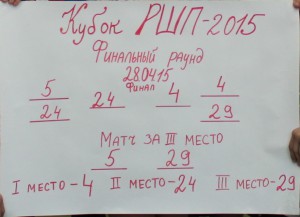 Кубок РШП-2015
Финальный раунд
28.04.15
Финал
5 24 4 4
24 29
Матч за III место
5 29
I место-4 II место-24 III место-29